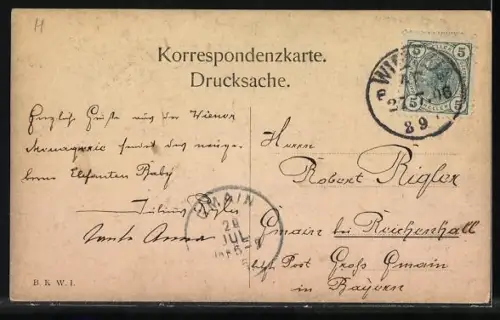 H
Korrespondenzkarte.
Drucksache.
5 5
5 5
WIEN
27. 06
89
Herzliche Grüße aus der Wiener
Menagerie sendet das neuge-
borene Elefanten Baby
Tante Anna
Herrn
Robert Rigler
Gmain bei Reichenhall
letzte Post Groß Gmain
in Bayern
GMAIN
28
JUL
B. K. W. I.